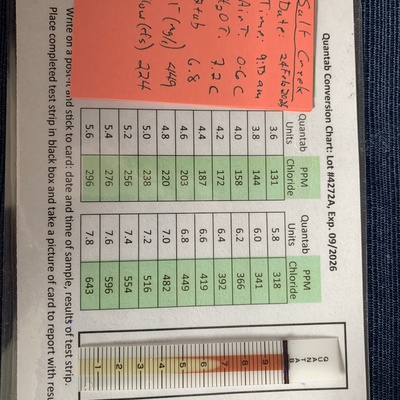 Quantab Conversion Chart: Lot #4272A, Exp. 09/2026
Salt Creek
Date: 24 Feb 2026
Time: 9:13 am
Air T: 0.6 C
H2O T: 7.2 C
Quantab 6.8
(mg/L) 449
Flow (cfs) 224
Quantab Units PPM Chloride
3.6 131
3.8 144
4.0 158
4.2 172
4.4 187
4.6 203
4.8 220
5.0 238
5.2 256
5.4 276
5.6 296
Quantab Units PPM Chloride
5.8 318
6.0 341
6.2 366
6.4 392
6.6 419
6.8 449
7.0 482
7.2 516
7.4 554
7.6 596
7.8 643
QUANTAB
9
8
7
6
5
4
3
2
1
Write on a post-it and stick to card: date and time of sample, results of test strip.
Place completed test strip in black box and take a picture of card to report with